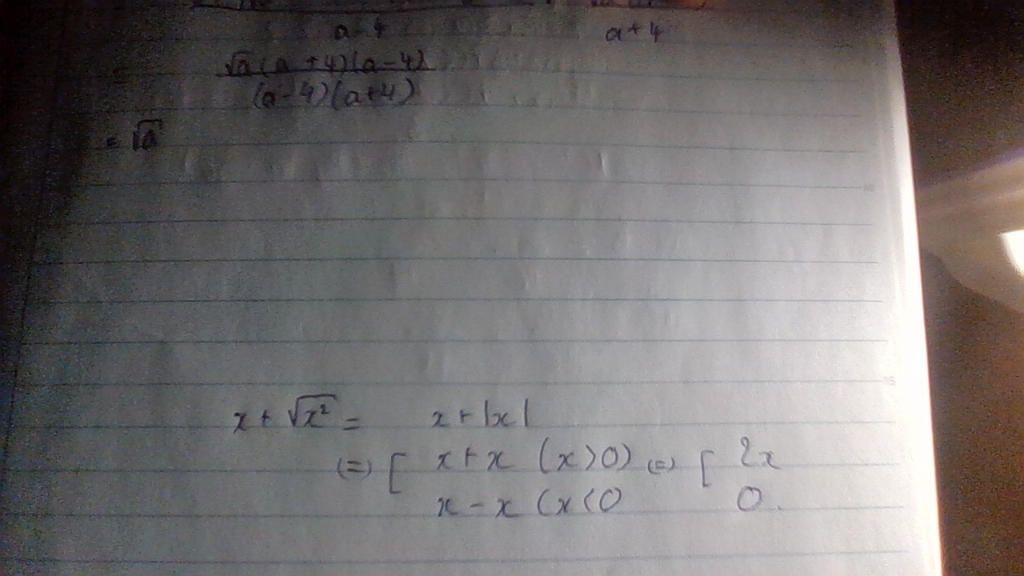 a-4 a+4
= √a(a+4)(a-4)
(a-4)(a+4)
= √a
x + √x² = x+|x|
(=) [ x+x (x>0) (=) [ 2x
x-x (x<0 0.